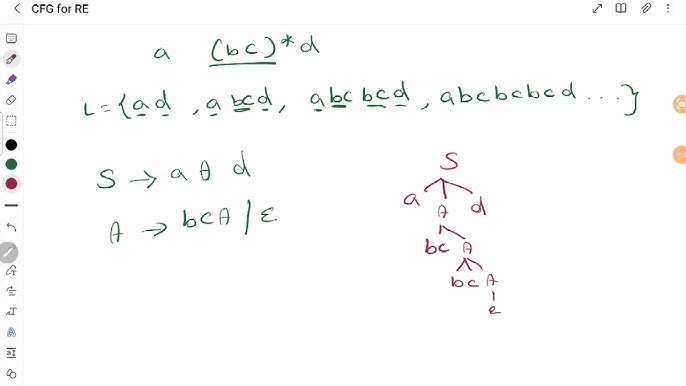 CFG for RE
a (bc)*d
L = {ad, abcd, abcbcd, abcbcbcd ...}
S → a A d
A → bcA / ε
S
a A d
bc A
bc A
ε